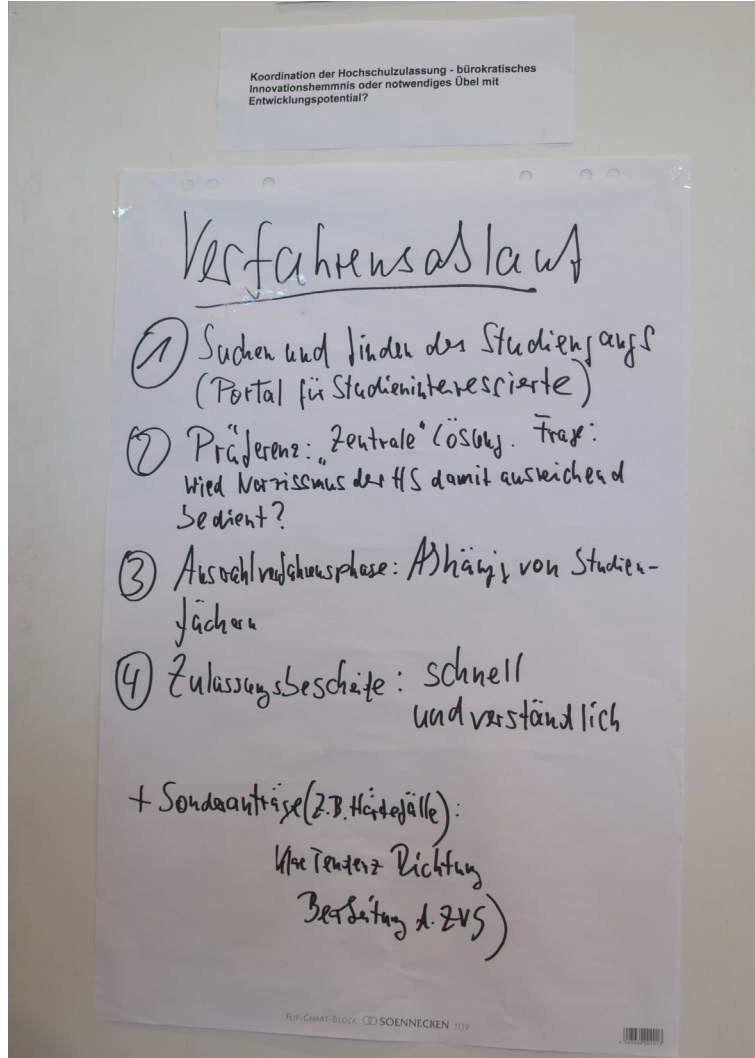 Koordination der Hochschulzulassung - bürokratisches
Innovationshemmnis oder notwendiges Übel mit
Entwicklungspotential?
Verfahrensablauf
1 Suchen und finden des Studiengangs
(Portal für Studieninteressierte)
2 Präferenz: „Zentrale“ Lösung. Frage:
wird Narzissmus der HS damit ausreichend
bedient?
3 Auswahlverfahrensphase: Abhängig von Studien-
fächern
4 Zulassungsbescheide: schnell
und verständlich
+ Sonderanträge (z.B. Härtefälle):
Klare Tendenz Richtung
Bearbeitung d. ZVS)
FLIP-CHART-BLOCK SOENNECKEN 1139